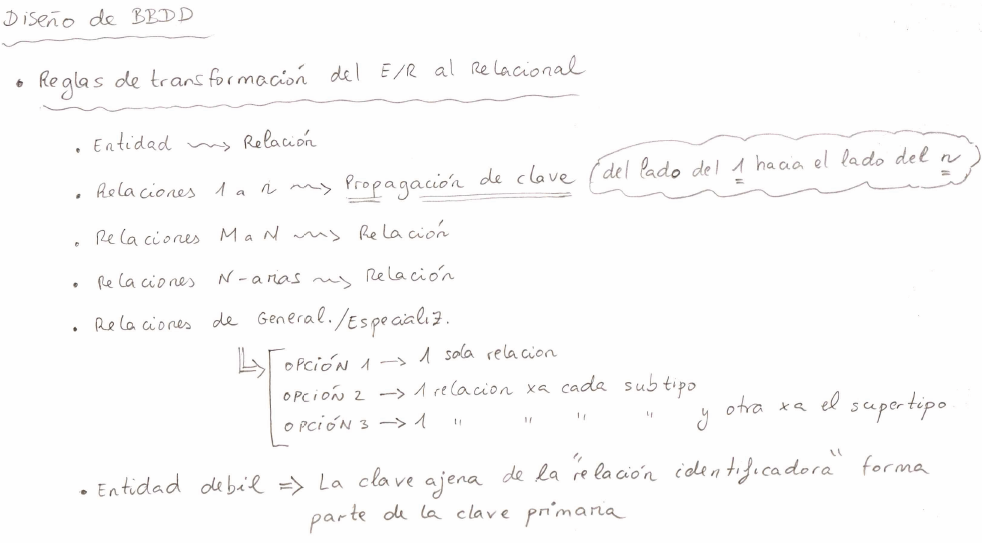 Diseño de BBDD
• Reglas de transformación del E/R al Relacional
• Entidad ⇝ Relación
• Relaciones 1 a n ⇝ Propagación de clave (del lado del 1 hacia el lado del n)
• Relaciones M a N ⇝ Relación
• Relaciones N-arias ⇝ Relación
• Relaciones de General./Especializ.
OPCIÓN 1 → 1 sola relacion
OPCIÓN 2 → 1 relacion xa cada subtipo
OPCIÓN 3 → 1 " " " " y otra xa el supertipo
• Entidad debil ⇒ La clave ajena de la "relación identificadora" forma
parte de la clave primaria